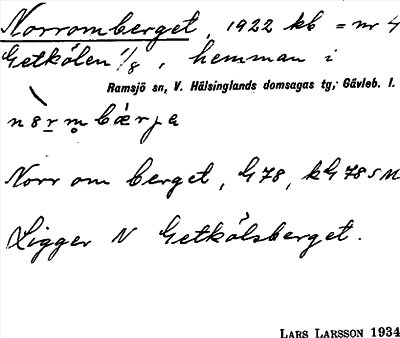 Norromberget, 1922 kb = nr 4
Getkölen 1/8, hemman i
Ramsjö sn, V. Hälsinglands domsagas tg, Gävleb. l.
Norr om berget, G78, kG78SM
Ligger N Getkölsberget.
LARS LARSSON 1934